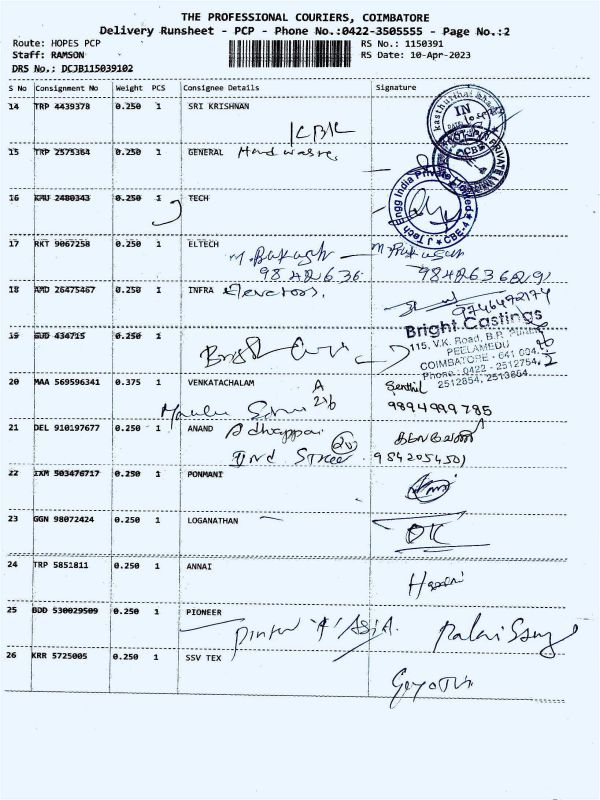 THE PROFESSIONAL COURIERS, COIMBATORE
Delivery Runsheet - PCP - Phone No.:0422-3505555 - Page No.:2
Route: HOPES PCP RS No.: 1150391
Staff: RAMSON RS Date: 10-Apr-2023
DRS No.: DCJB115039102
S No Consignment No Weight PCS Consignee Details Signature
14 TRP 4439378 0.250 1 SRI KRISHNAN
KBK
IN
15 TRP 2575364 0.250 1 GENERAL Hardwares
16 KMU 2480343 0.250 1 TECH
J Tech Engg India Private Limited CBE-4
17 RKT 9067258 0.250 1 ELTECH M. Prakash
9842636
9842636829
18 AMD 26475467 0.250 1 INFRA Elevators.
9746492174
19 GUD 434715 0.250 1
Bright Castings
115, V.K. Road, B.R. Puram
PEELAMEDU
COIMBATORE - 641 004.
Phone : 0422 - 2512754,
2512854, 2513864.
20 MAA 569596341 0.375 1 VENKATACHALAM A Senthil
9894999785
21 DEL 910197677 0.250 1 ANAND
IInd Street 9842054501
22 IXM 503476717 0.250 1 PONMANI
23 GGN 98072424 0.250 1 LOGANATHAN
OK
24 TRP 5851811 0.250 1 ANNAI
25 BDD 530029509 0.250 1 PIONEER
26 KRR 5725005 0.250 1 SSV TEX